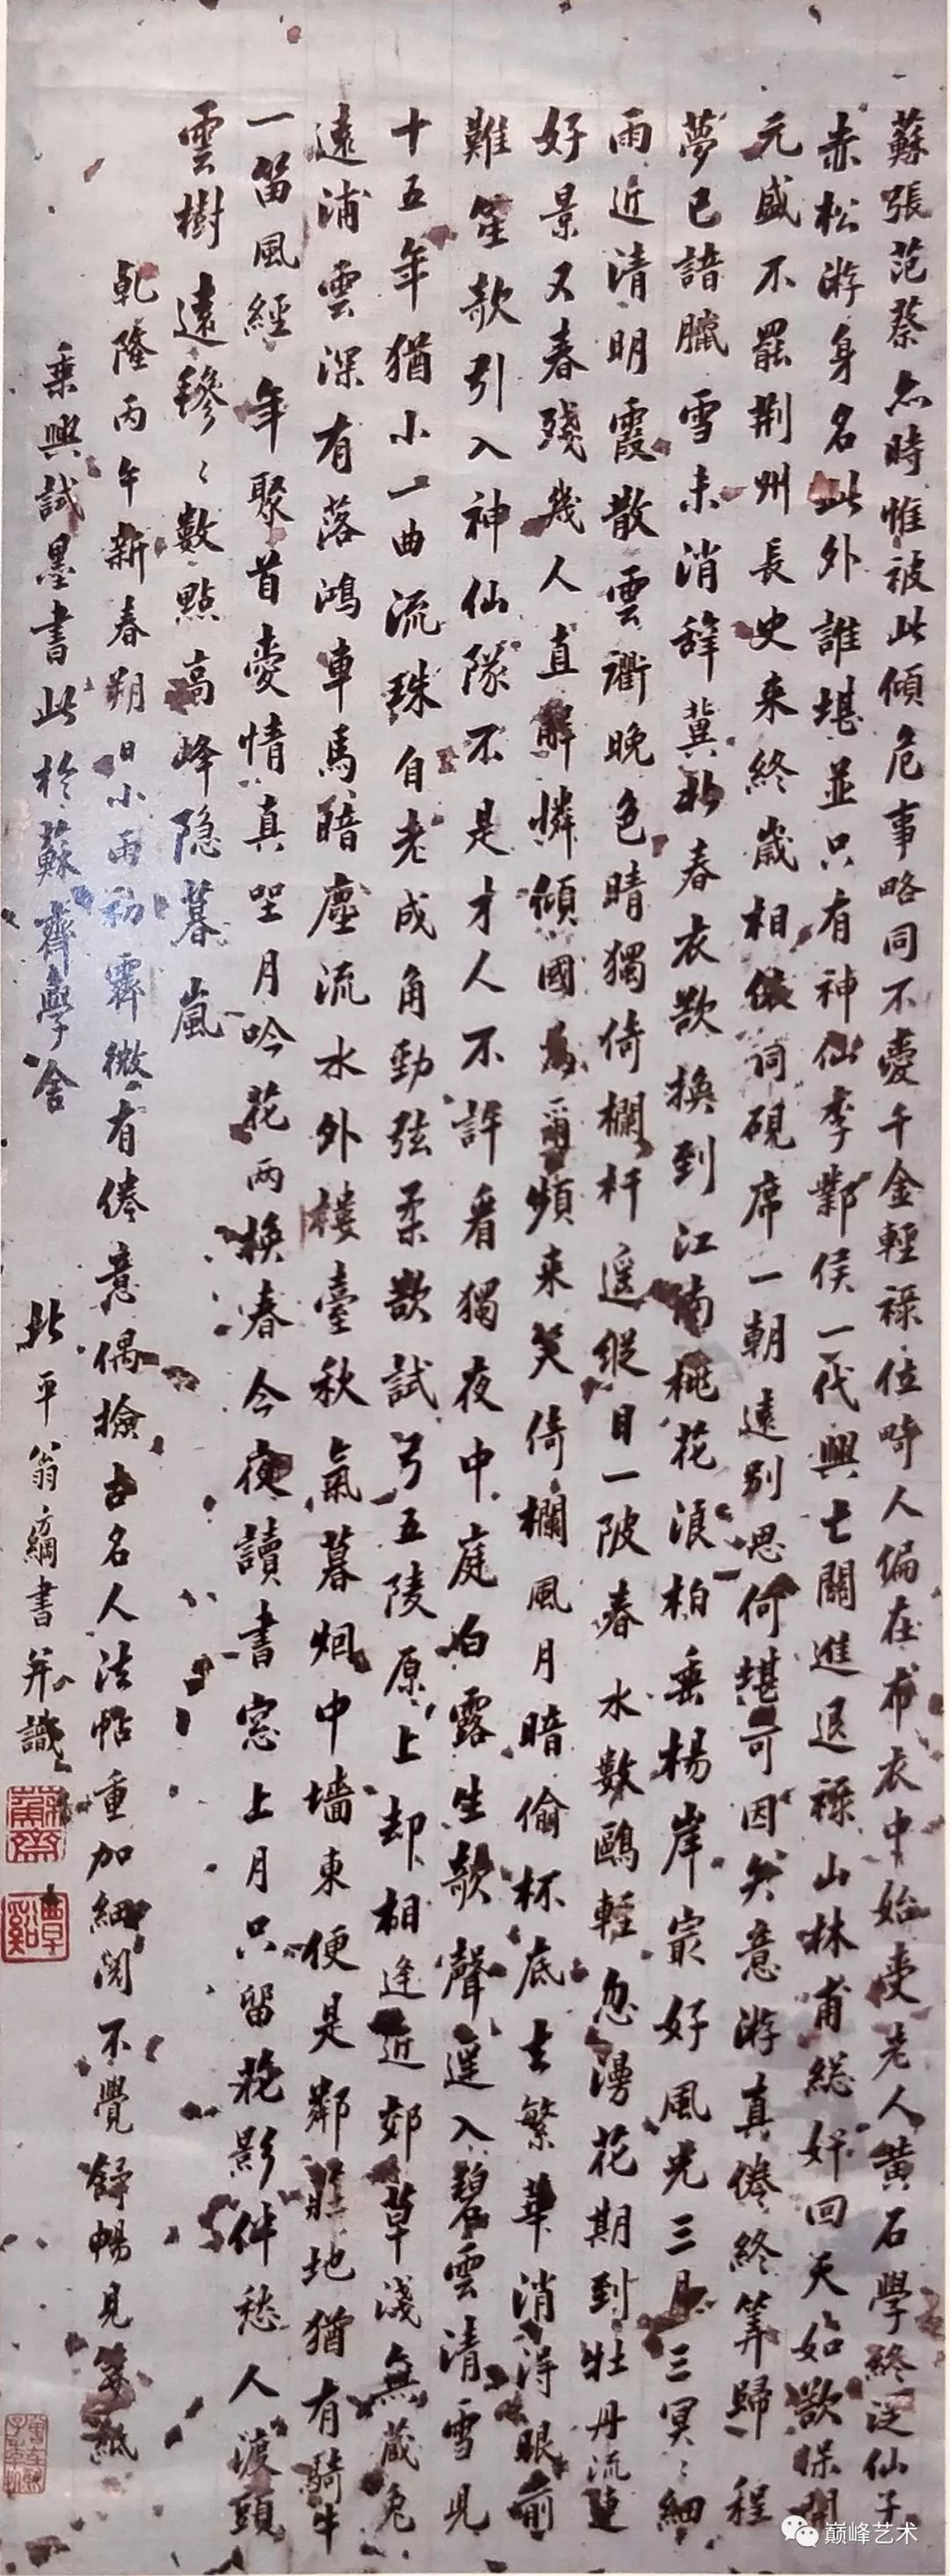 蘇張范蔡亦時惟彼此傾危事略同不愛千金輕祿位畸人偏在布衣中始受老人黃石學終從仙子
赤松游身名此外誰堪並只有神仙李鄴侯一代興亡關進退祿山林甫總奸回天如欲保開
元盛不罷荆州長史來終歲相依詞硯席一朝遠別思何堪可因失意游真倦終筭歸程
夢已諳臘雪未消辭冀北春衣欲換到江南桃花浪柏垂楊岸最好風光三月三冥〻細
雨近清明霞散雲衢晚色晴獨倚欄杆遥縱目一陂春水數鷗輕忽漫花期到牡丹流連
好景又春殘幾人直解憐傾國為爾頻来笑倚欄風月暗偷杯底去繁華消得眼前
難笙歌引入神仙隊不是才人不許看獨夜中庭白露生歌聲遥入碧雲清雪見
十五年猶小一曲流珠自老成角勁弦柔欲試弓五陵原上却相逢近郊草淺無藏兔
遠浦雲深有落鴻車馬暗塵流水外樓臺秋氣暮烟中墻東便是鄰莊地猶有騎牛
一笛風經年聚首愛情真坐月吟花兩換春今夜讀書窓上月只留花影伴愁人渡頭
雲樹遠毿〻數點高峰隐暮嵐
乾隆丙午新春朔日小雨初霽微有倦意偶撿古名人法帖重加細閱不覺舒暢見案紙
乘興試墨書此於蘇齋學舍 北平翁方綱書并識
蘇齋
覃谿
巅峰艺术